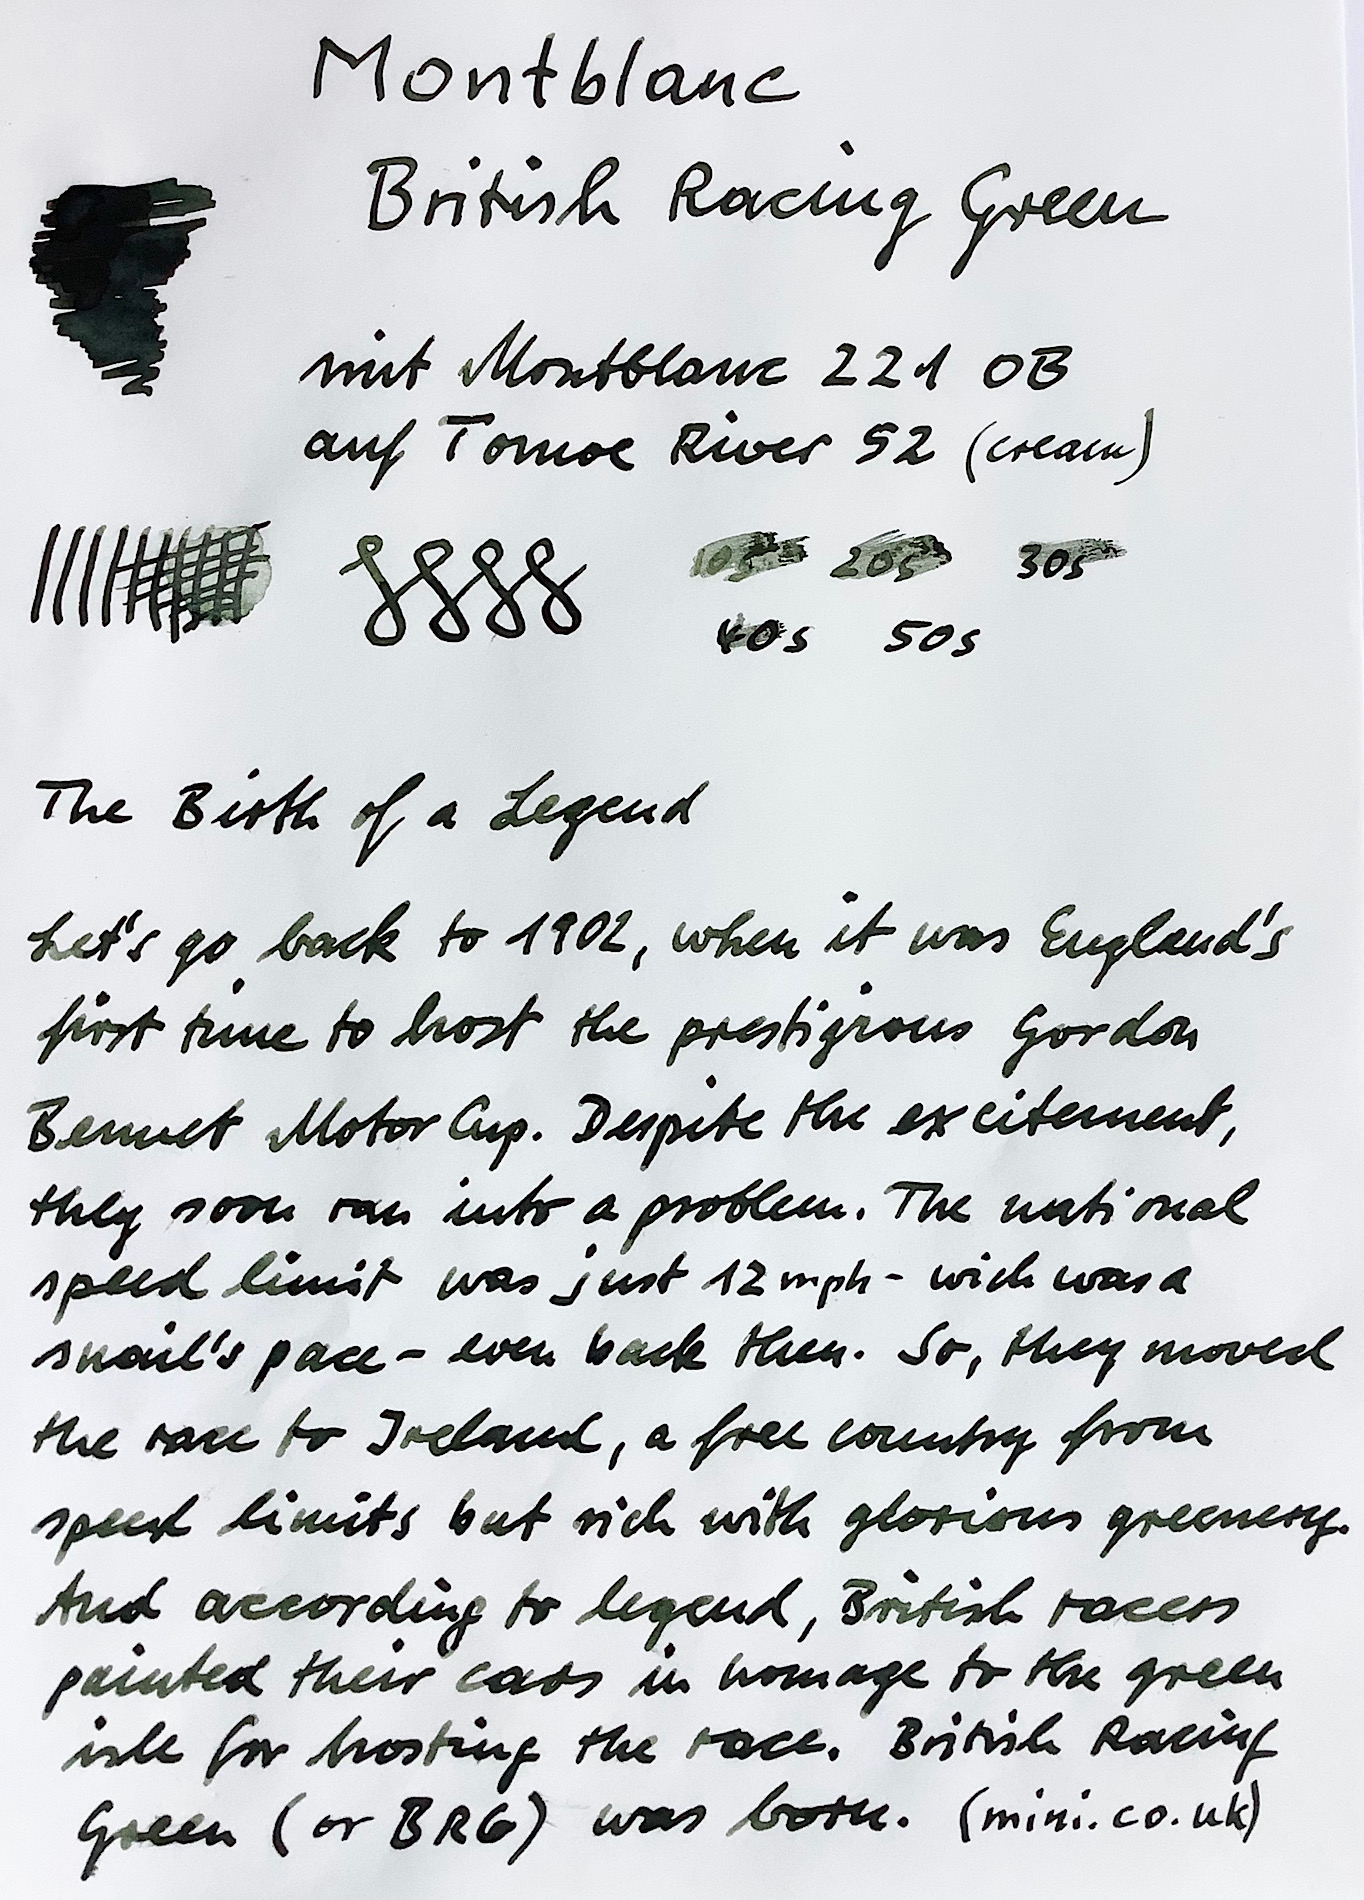 Montblanc
British Racing Green
mit Montblanc 221 OB
auf Tomoe River 52 (cream)
10s 20s 30s
40s 50s
The Birth of a Legend
Let's go back to 1902, when it was England's
first time to host the prestigious Gordon
Bennet Motor Cup. Despite the excitement,
they soon ran into a problem. The national
speed limit was just 12 mph - wich was a
snail's pace - even back then. So, they moved
the race to Ireland, a free country from
speed limits but rich with glorious greenery.
And according to legend, British racers
painted their cars in homage to the green
isle for hosting the race. British Racing
Green (or BRG) was born. (mini.co.uk)